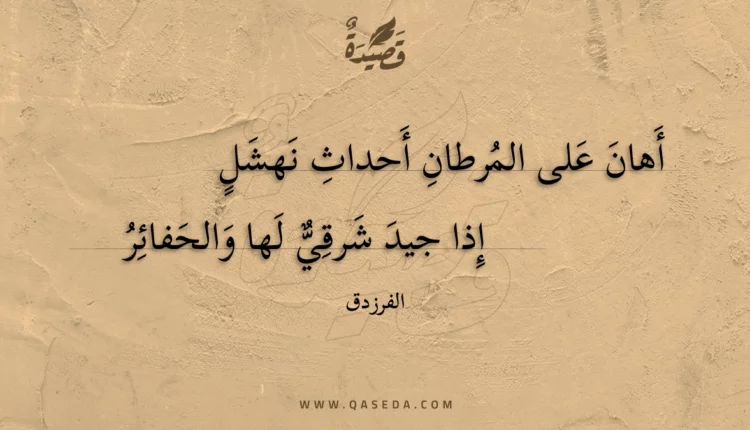 قَصِيدَةٌ
أَهانَ عَلى المُرطانِ أَحداثِ نَهشَلٍ
إِذا جيدَ شَرقِيٌّ لَها وَالحَفائِرُ
الفرزدق
WWW.QASEDA.COM